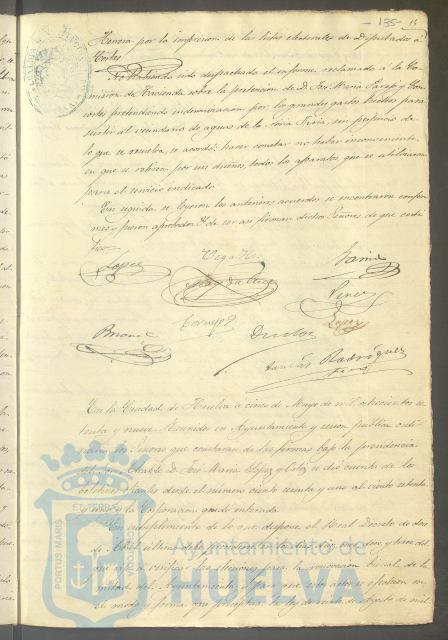 135 15
Herrera por la impresion de las listas electorales de Diputados á
Córtes.
No habiendo sido despachado el informe reclamado á la Co-
mision de Hacienda sobre la pretension de D. José María Parejo y Con-
sortes pretendiendo indemnizacion por los grandes gastos hechos para
surtir al vecindario de aguas de la Ria, sin perjuicio de
lo que se resuelva, se acordó hacer constar no haber inconveniente
en que se retiren por sus dueños, todos los aparatos que se utilizaron
para el servicio indicado.
En seguida se leyeron los anteriores acuerdos se encontraron confor-
mes y fueron aprobados, y de ser así firman dichos Señores de que certi-
fico.
Lopez
Vega
Jaime
Perez
Cornejo
Lopez
Brunel
Rodriguez
En la Ciudad de Huelva á cinco de Mayo de mil ochocientos se-
tenta y nueve. Reunidos en Ayuntamiento y sesion publica ordi-
naria los Señores que constarán de las firmas bajo la presidencia
del Alcalde D. José María Lopez se dió cuenta de los
boletines desde el número ciento sesenta y uno al ciento setenta
y uno y la Corporacion quedó enterada.
En cumplimiento de lo que dispone el Real Decreto de dos
de Abril ultimo
que á verificar las elecciones para la renovacion bienal de la
mitad del Ayuntamiento y para que este acto se efectúe en
el modo y forma que preceptua la Ley de veinte de Agosto de mil
PORTUS MARIS
Ayuntamiento de
HUELVA